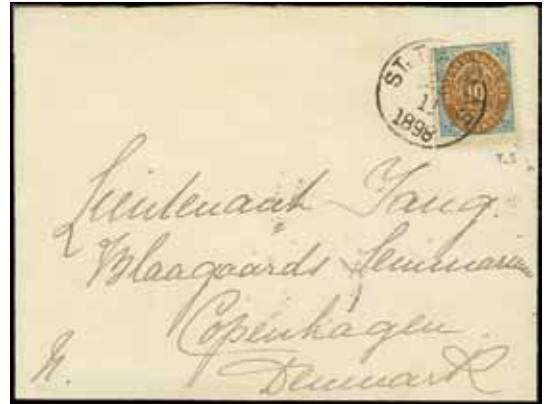 ST. T
10
17
1898
T.S
Lieutenant Jang.
Blaagaards Seminarium
Copenhagen
Denmark